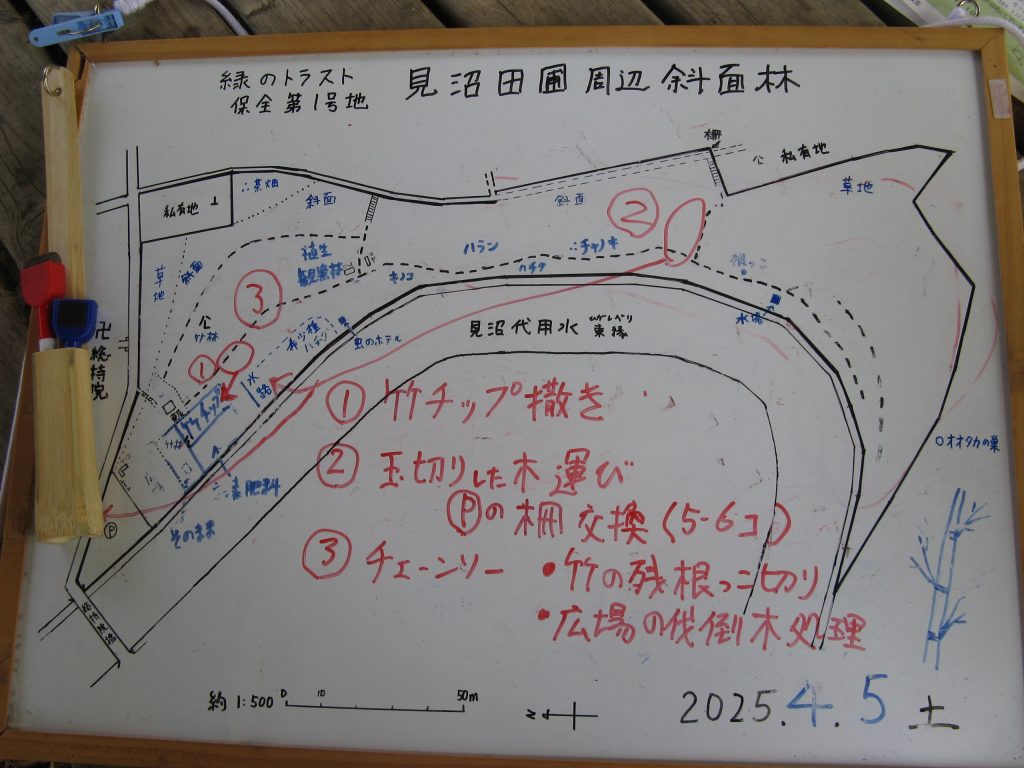 緑のトラスト
保全第1号地
見沼田圃周辺斜面林
柵
私有地
草地
茶畑
斜面
私有地
斜面
②
ハラン
チャノキ
植生
観察林
キノコ
ハチク
根っこ
草地
斜面
③
竹林
水場
見沼代用水
東縁
虫のホテル
卍総持院
①
水路
竹チップ
オオタカの巣
① 竹チップ撒き
② 玉切りした木運び
Ⓟの柵交換(5-6コ)
肥料
そのまま
Ⓟ
③ チェーンソー ・竹の残根っこ切り
・広場の伐倒木処理
総持院橋
約 1:500
0 10 50m
N
2025.4.5 土